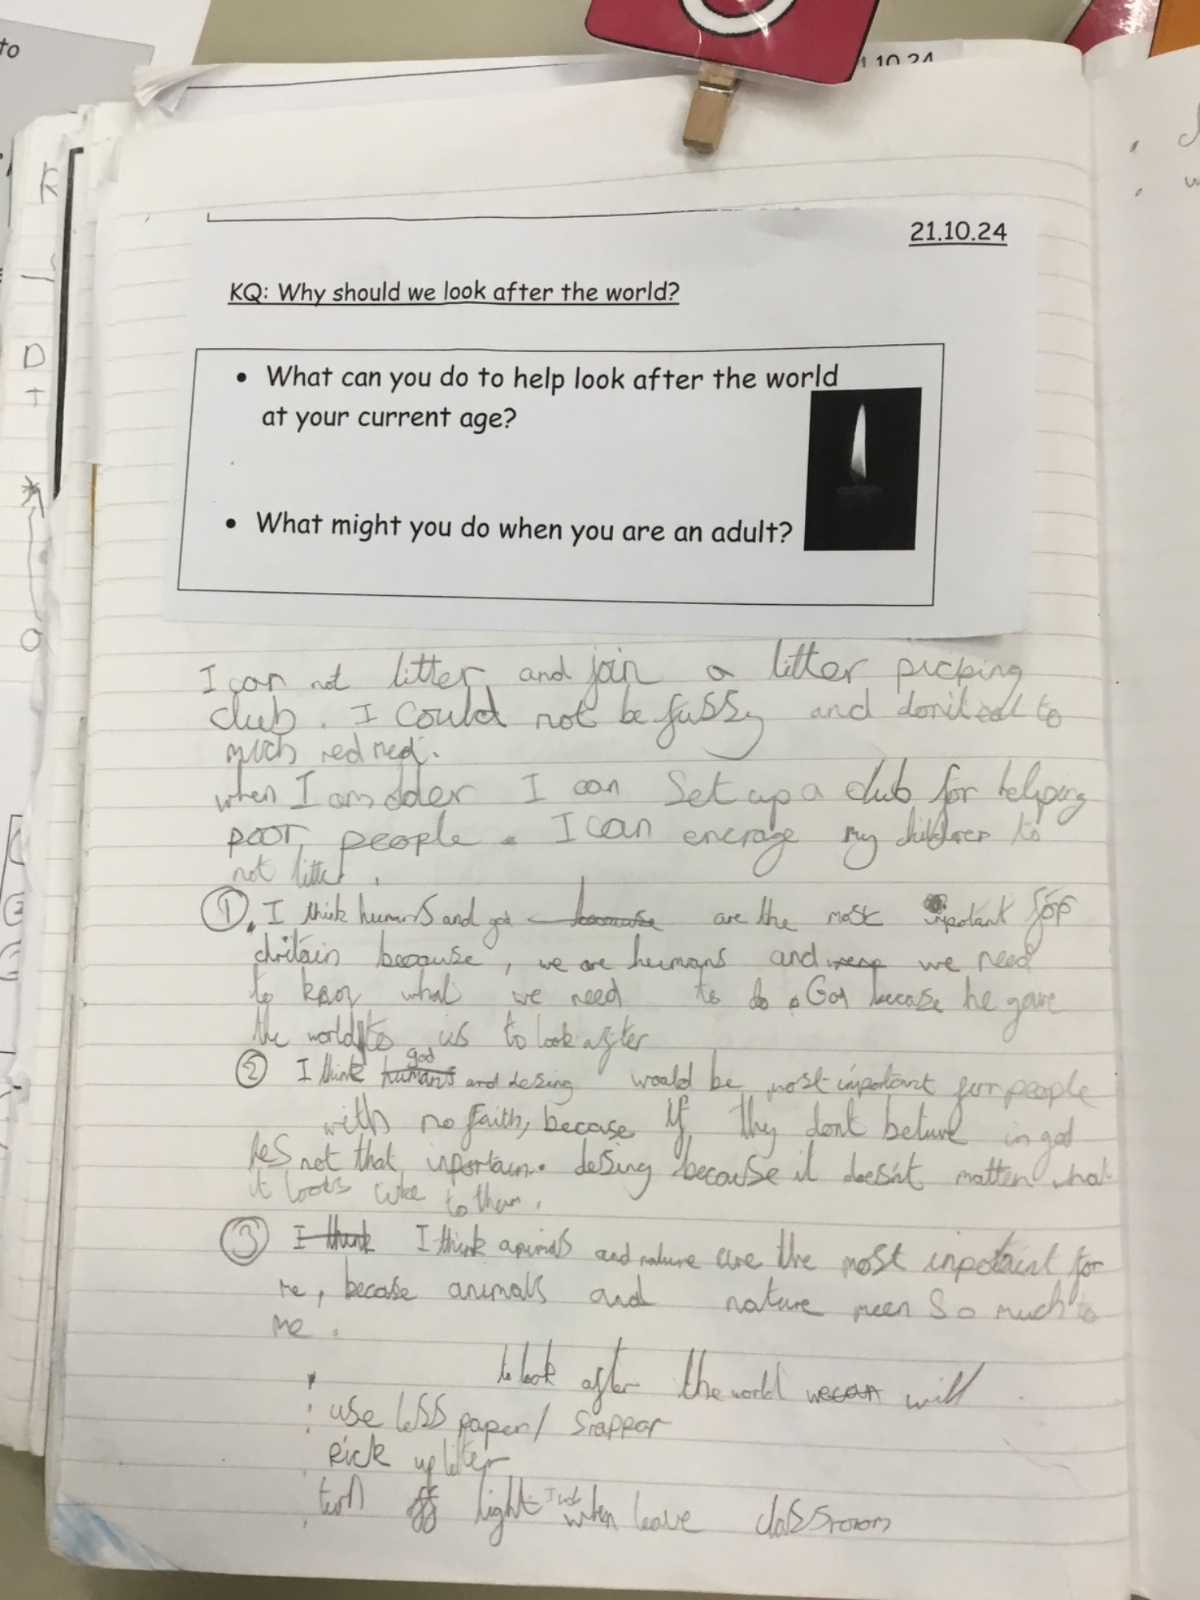 21.10.24
KQ: Why should we look after the world?
• What can you do to help look after the world
at your current age?
• What might you do when you are an adult?
I can not litter and join a litter picking
club. I could not be fussy and don't eat to
much red med.
when I am older I can Set up a club for helping
poor people. I can encrage my children to
not litter.
① I think humans and god because are the most inpotant for
chritain because, we are humans and we need
to know what we need to do. God becase he gave
the world to us to look after
② I think humans god and desing would be most important for people
with no faith, becase if thy dont belive in god
hes not that inportain. desing because it doesn't matter what
it looks like to them.
③ I think I think animals and nature are the most inpotaint for
me, becase animals and nature meen So much to
me.
to look after the world we can will
use less paper/
Pick up litter
turn off light when leave classroom